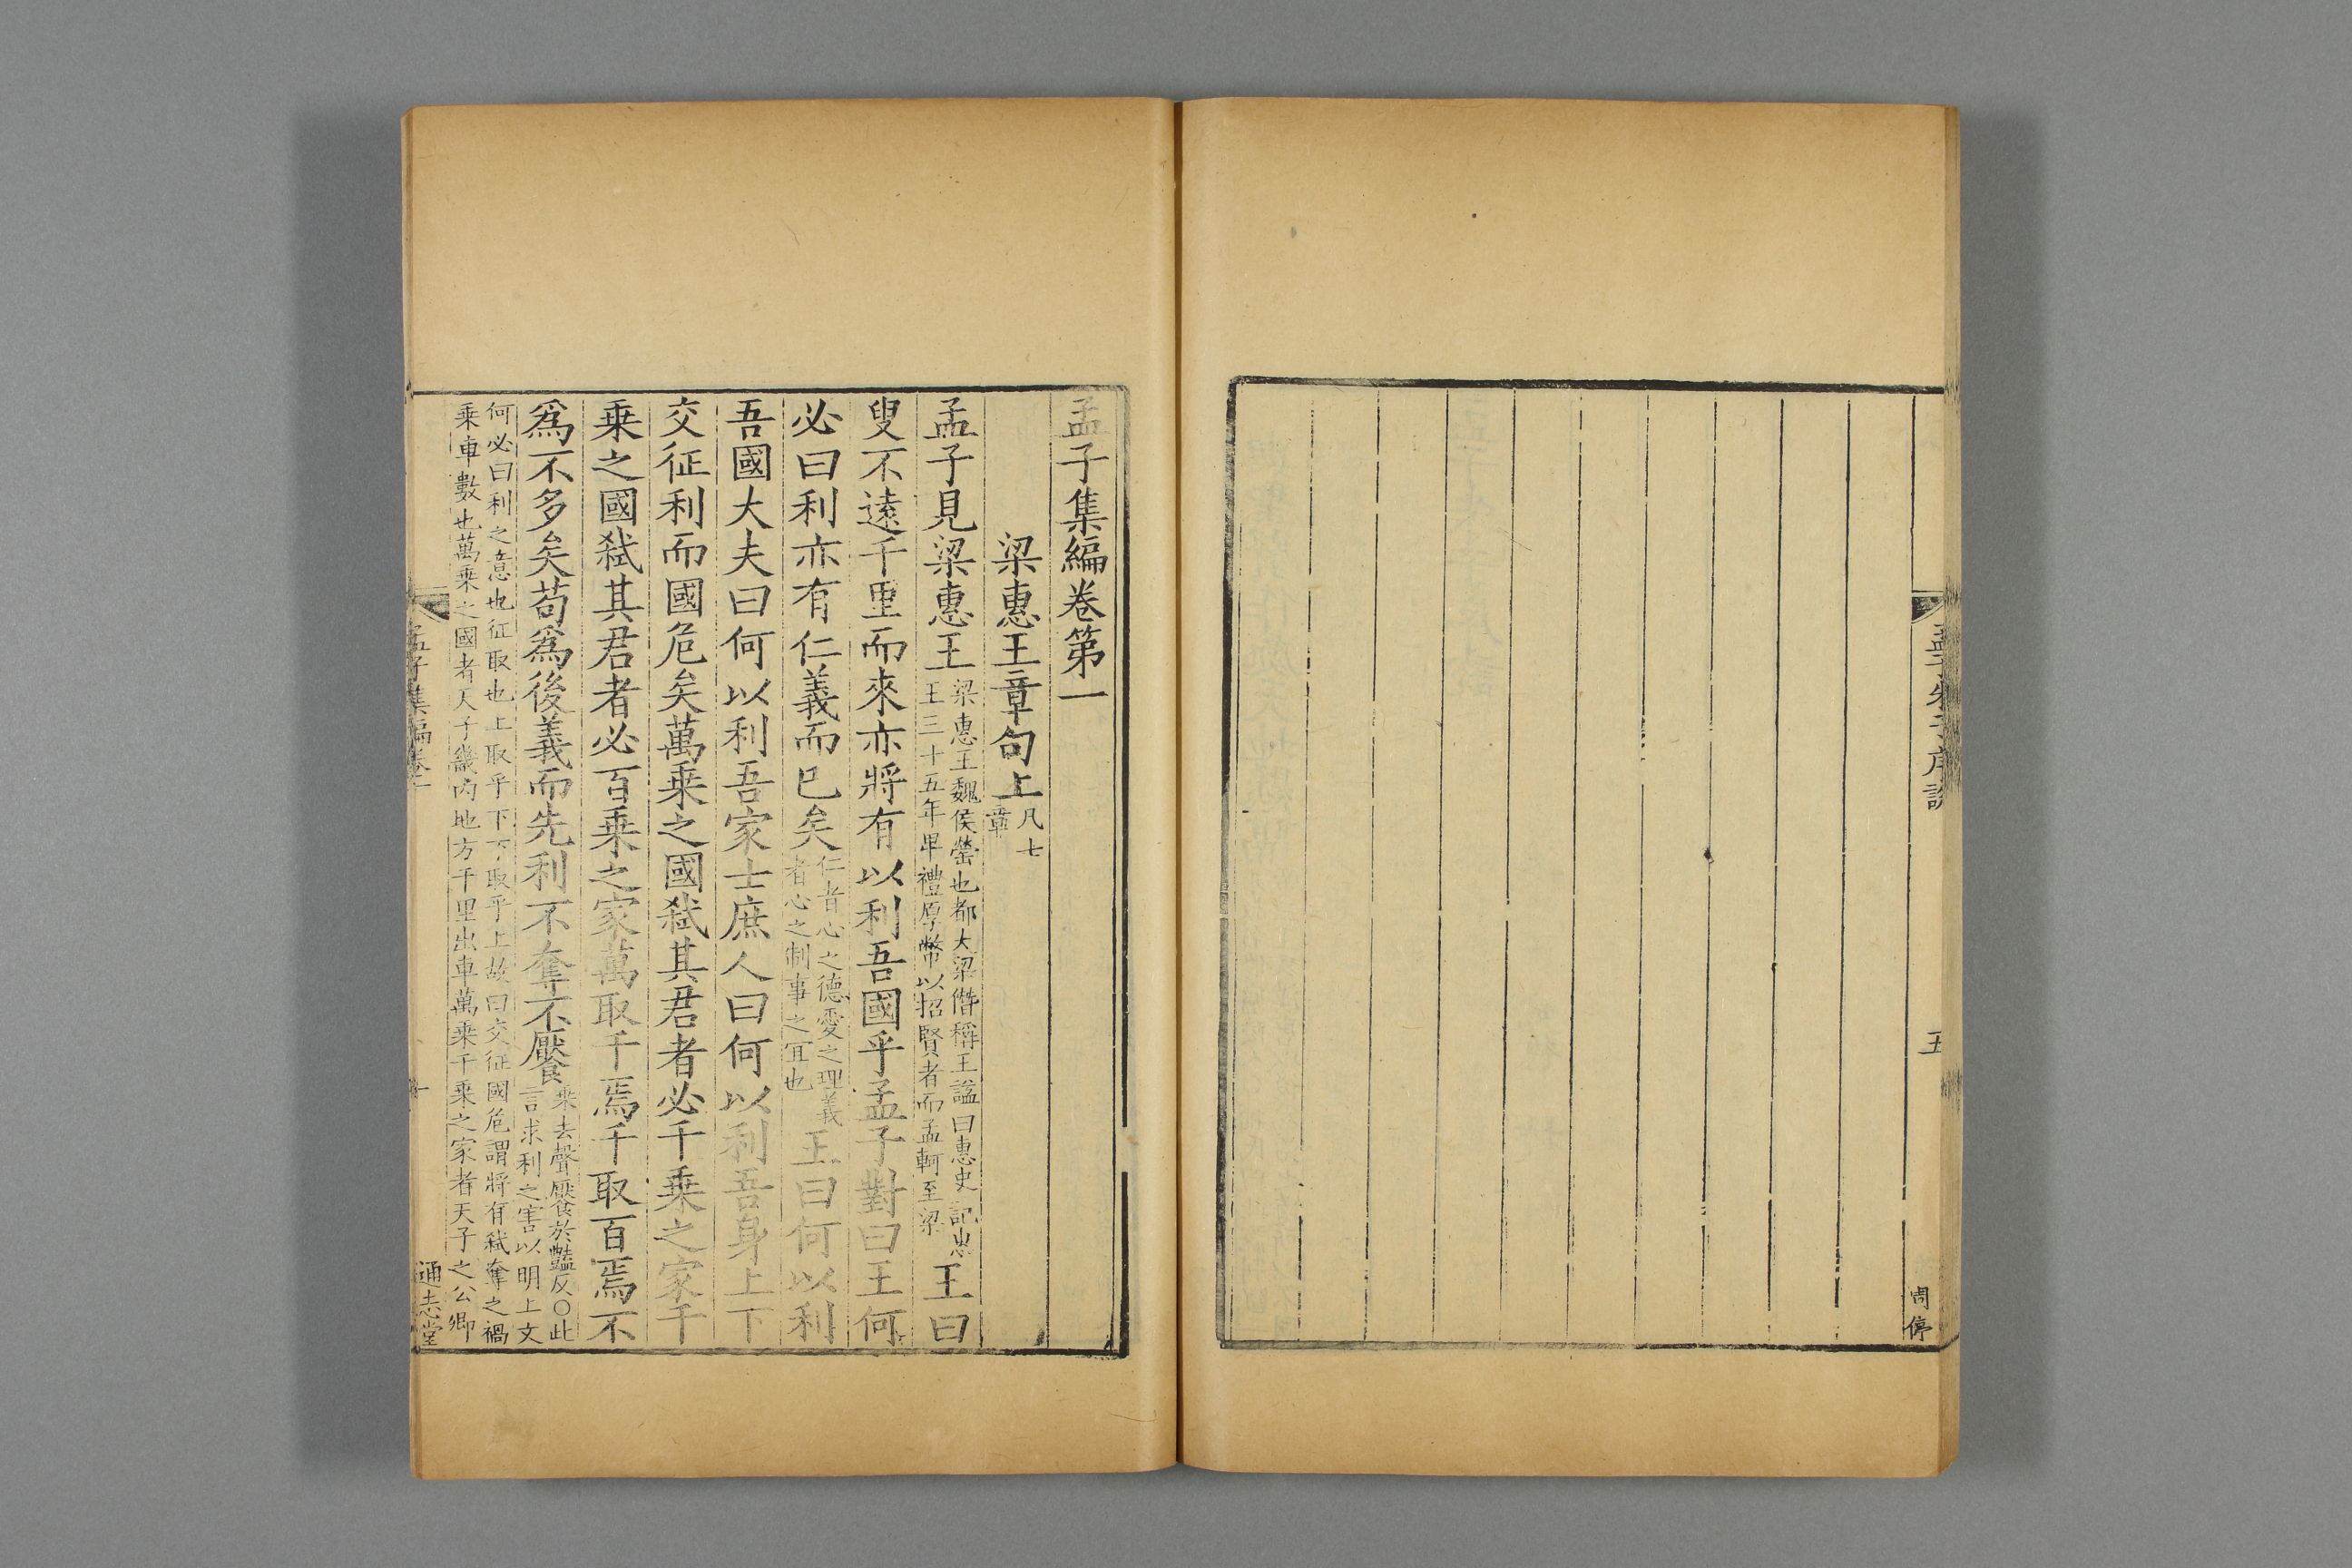 孟子朱子序說
五
周停
孟子集編卷第一
梁惠王章句上凡七章
孟子見梁惠王梁惠王魏侯罃也都大梁僭稱王諡曰惠史記惠王三十五年卑禮厚幣以招賢者而孟軻至梁王曰
叟不遠千里而來亦將有以利吾國乎孟子對曰王何
必曰利亦有仁義而已矣仁者心之德愛之理義者心之制事之宜也王曰何以利
吾國大夫曰何以利吾家士庶人曰何以利吾身上下
交征利而國危矣萬乗之國弑其君者必千乗之家千
乗之國弑其君者必百乗之家萬取千焉千取百焉不
爲不多矣苟爲後義而先利不奪不饜乗去聲饜於豔反○此言求利之害以明上文
何必曰利之意也征取也上取乎下下取乎上故曰交征國危謂將有弑奪之禍
乗車數也萬乗之國者天子畿內地方千里出車萬乗千乗之家者天子之公卿
孟子集編卷一
一
通志堂